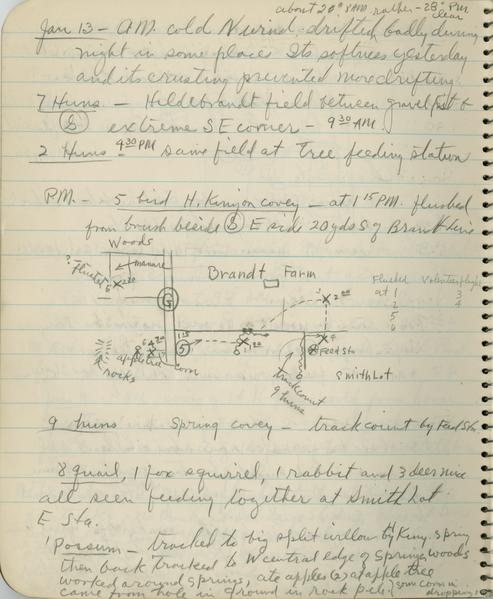 about 20° 8 AM rather - 28° PM
clear
Jan 13 - A.M. cold N wind, drifted badly during
night in some places Its softness yesterday
and its crusting prevented more drifting
7 Huns - Hildebrandt field between gravel pit &
S extreme SE corner - 9 30 AM
2 Huns 4 30 PM same field at Tree feeding station
P.M. - 5 bird H. Kinyon covey - at 1 15 PM. flushed
from brush beside S E side 20 yds S of Brandt Line
Woods
manure
? Flushed
5 2 20
G
Brandt Farm
2 00
Flushed at
1
2
5
6
Voluntary flight
3
4
1 15
5
5 1 20
Feed Sta
apple tree
rocks
corn
track count
9 huns
Smith Lot
9 huns Spring covey - track count by Feed Sta
8 quail, 1 fox squirrel, 1 rabbit and 3 deer mice
all seen feeding together at Smith Lot
E Sta.
'Possum - tracked to big split willow by Keny. spring
then back tracked to W central edge of Spring woods
worked around springs, ate apples at apple tree
came from hole in ground in rock pile. some corn in
dropping